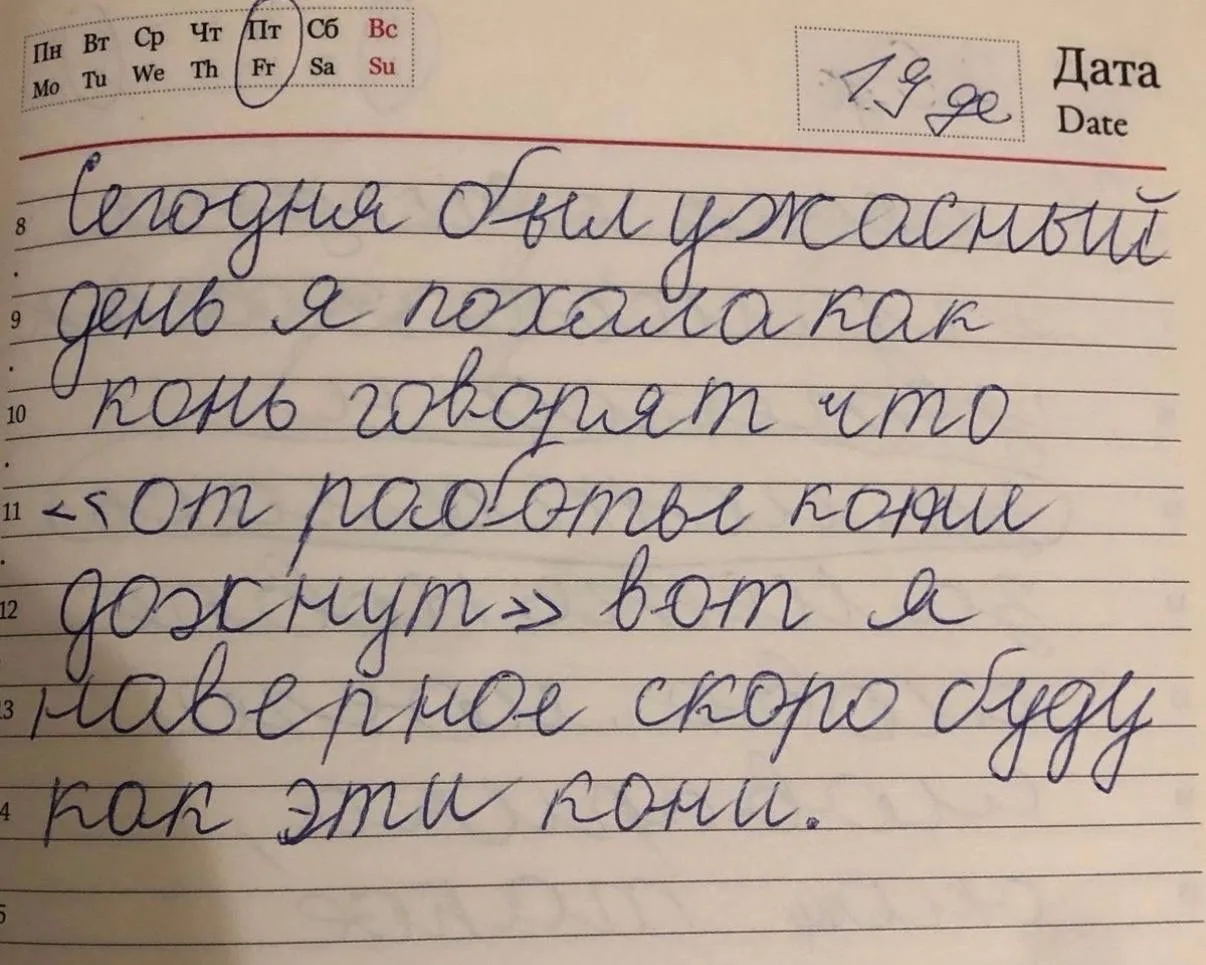 Пн Вт Ср Чт Пт Сб Вс
Mo Tu We Th Fr Sa Su
19 де
Дата
Date
8 Сегодня был ужасный
9 день я похала как
10 конь говорят что
11 <<от работы кони
12 дохнут>> вот я
13 наверное скоро буду
4 как эти кони.
5